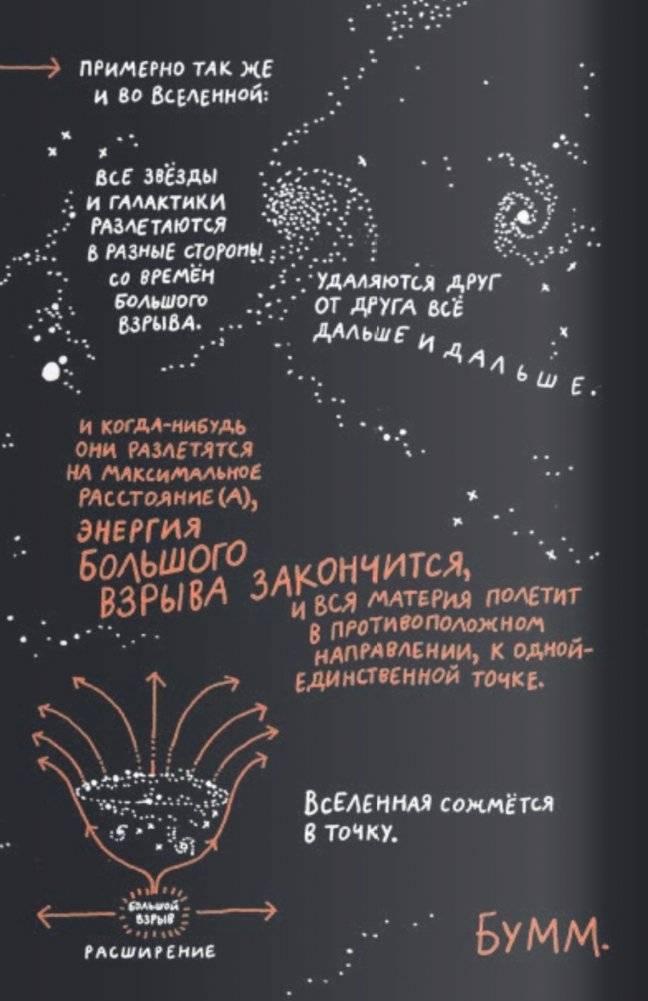 ПРИМЕРНО ТАК ЖЕ
И ВО ВСЕЛЕННОЙ:
ВСЕ ЗВЁЗДЫ
И ГАЛАКТИКИ
РАЗЛЕТАЮТСЯ
В РАЗНЫЕ СТОРОНЫ
СО ВРЕМЁН
БОЛЬШОГО
ВЗРЫВА.
УДАЛЯЮТСЯ ДРУГ
ОТ ДРУГА ВСЁ
ДАЛЬШЕ И ДАЛЬШЕ.
И КОГДА-НИБУДЬ
ОНИ РАЗЛЕТЯТСЯ
НА МАКСИМАЛЬНОЕ
РАССТОЯНИЕ (А),
ЭНЕРГИЯ
БОЛЬШОГО
ВЗРЫВА ЗАКОНЧИТСЯ,
И ВСЯ МАТЕРИЯ ПОЛЕТИТ
В ПРОТИВОПОЛОЖНОМ
НАПРАВЛЕНИИ, К ОДНОЙ-
ЕДИНСТВЕННОЙ ТОЧКЕ.
ВСЕЛЕННАЯ СОЖМЁТСЯ
В ТОЧКУ.
БОЛЬШОЙ
ВЗРЫВ
РАСШИРЕНИЕ
БУММ.